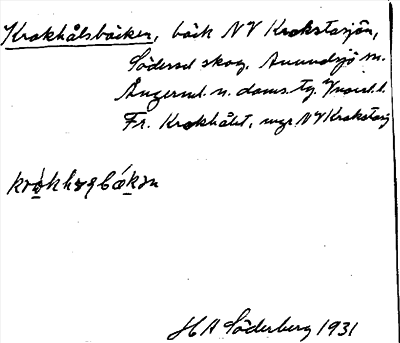 Krokhålsbäcken, bäck NV Krokstasjön,
Södersel skog. Anundsjö sn.
Ångerml. n. doms. tg. Ynoirl.
Fr. Krokhålet, myr NV Krokstasj
krokhɷɡbækɷn
H A Söderberg 1931